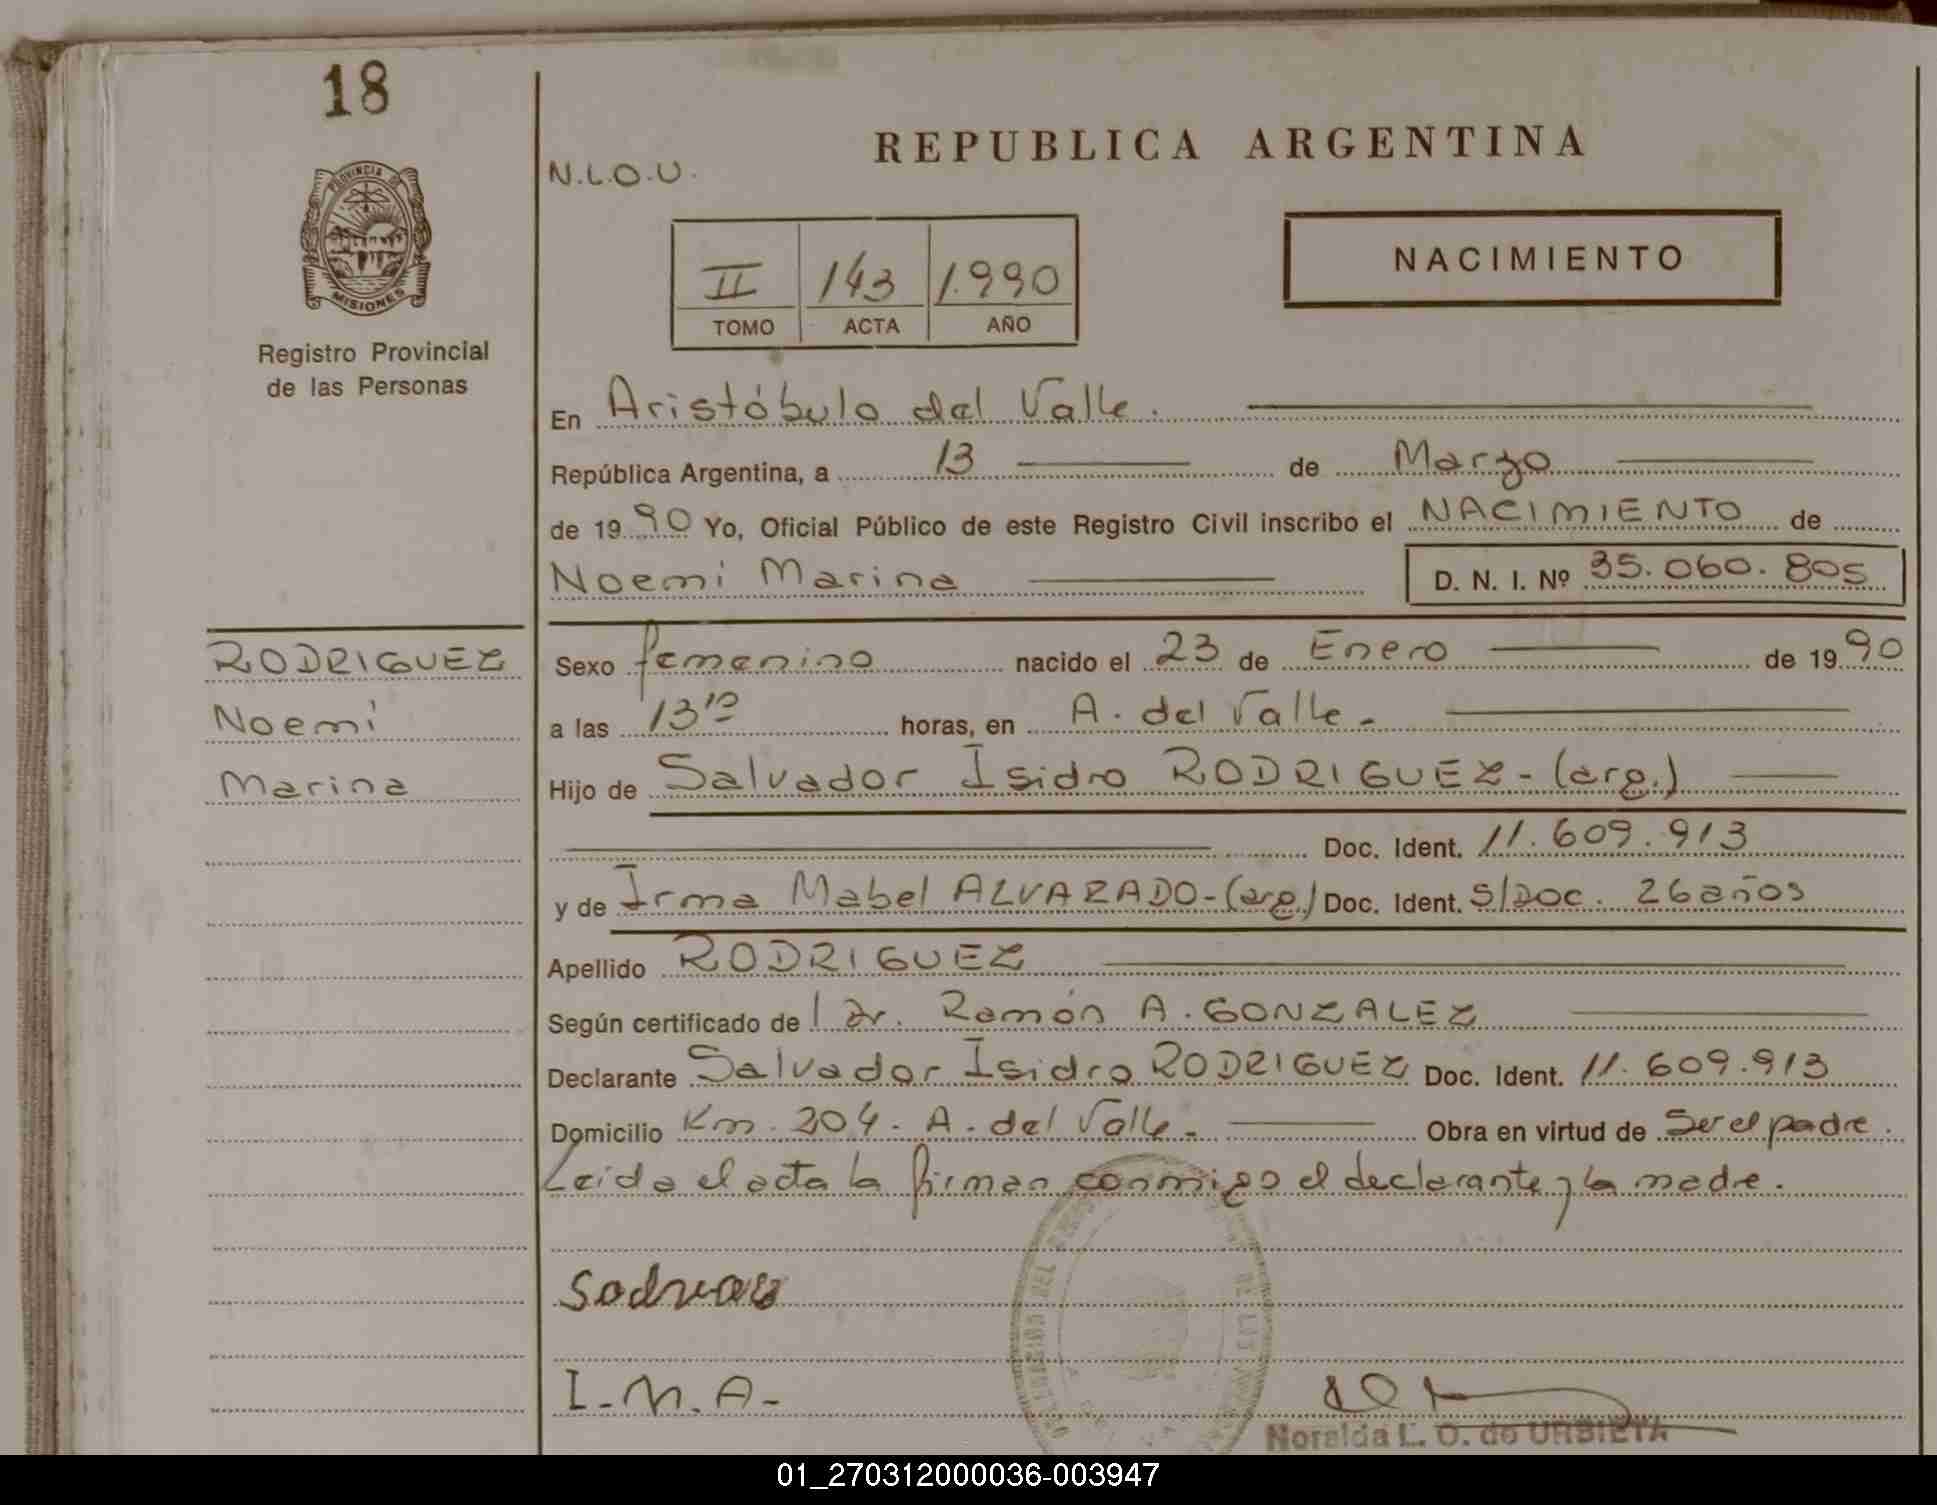 18
REPUBLICA ARGENTINA
N.L.O.U.
PROVINCIA DE
MISIONES
NACIMIENTO
II 143 1.990
TOMO ACTA AÑO
Registro Provincial
de las Personas
En Aristóbulo del Valle.
República Argentina, a 13 de Marzo
de 1990 Yo, Oficial Público de este Registro Civil inscribo el NACIMIENTO de
Noemí Marina D. N. I. Nº 35.060.805
RODRIGUEZ
Noemí
Marina
Sexo femenino nacido el 23 de Enero de 1990
a las 13 10 horas, en A. del Valle.-
Hijo de Salvador Isidro RODRIGUEZ - (arg.)
Doc. Ident. 11.609.913
y de Irma Mabel ALVARADO - (arg.) Doc. Ident. S/DOC. 26 años
Apellido RODRIGUEZ
Según certificado de l Dr. Ramón A. GONZALEZ
Declarante Salvador Isidro RODRIGUEZ Doc. Ident. 11.609.913
Domicilio Km. 204 - A. del Valle.- Obra en virtud de Ser el padre.
Leida el acta la firman conmigo el declarante y la madre.
I-M.A-
Noralda L. O. de URBIETA
01_270312000036-003947